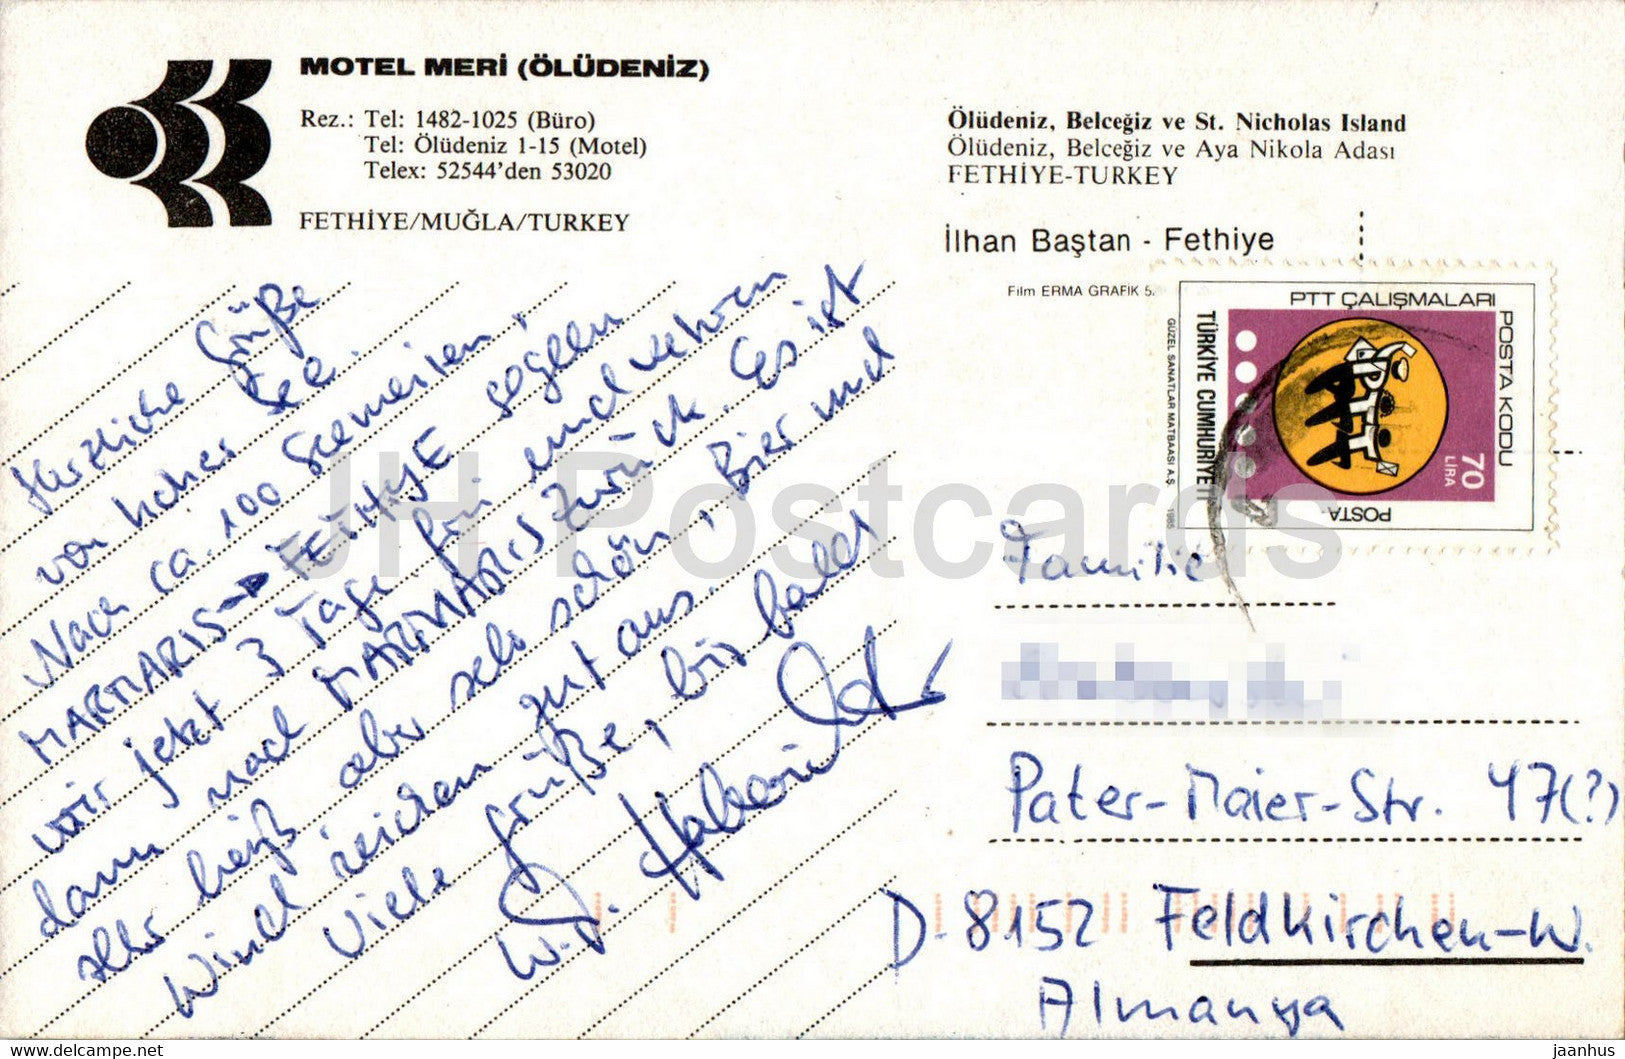 MOTEL MERİ (ÖLÜDENİZ)
Rez.: Tel: 1482-1025 (Büro)
Tel: Ölüdeniz 1-15 (Motel)
Telex: 52544'den 53020
FETHİYE/MUĞLA/TURKEY
Ölüdeniz, Belceğiz ve St. Nicholas Island
Ölüdeniz, Belceğiz ve Aya Nikola Adası
FETHİYE-TURKEY
İlhan Baştan - Fethiye
Film ERMA GRAFİK 5.
PTT ÇALIŞMALARI
POSTA KODU
TÜRKİYE CUMHURİYETİ
GÜZEL SANATLAR MATBAASI A.Ş. 1985
70
LİRA
PTT
POSTA
Herzliche Grüße
von hoher See.
Nach ca. 100 Seemeilen,
MARMARIS → FETHIYE segeln
wir jetzt 3 Tage hin und
dann nach MARMARIS zurück. Es ist
sehr heiß aber sehr schön, Bier und
Wind reichen gut aus.
Viele Grüße, bis bald
W.
Familie
Pater-Maier-Str. 47(?)
D-8152 Feldkirchen-W.
Almanya
JH Postcards
jaanhus
delcampe.net